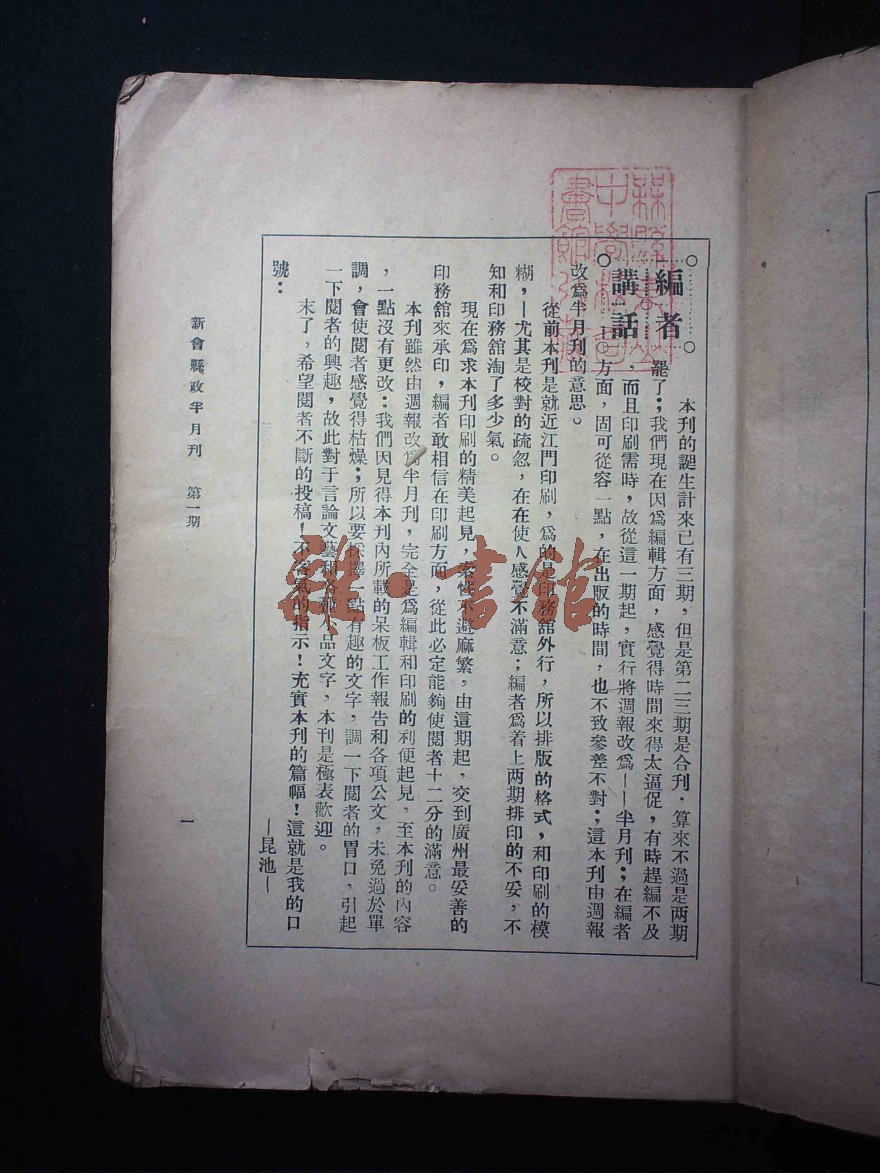 編者
講話
本刊的誕生計來已有三期，但是第二三期是合刊．算來不過是两期
罷了；我們現在因爲編輯方面，感覺得時間來得太逼促，有時趕編不及
，而且印刷需時，故從這一期起，實行將週報改爲——半月刊；在編者
方面，固可從容一點，在出版的時間，也不致參差不對；這本刊由週報
改爲半月刊的意思。
從前本刊是就近江門印刷，爲的是印務舘外行，所以排版的格式，和印刷的模
糊，—尤其是校對的疏忽，在在使人感覺不滿意；編者爲着上两期排印的不妥，不
知和印務舘淘了多少氣。
現在爲求本刊印刷的精美起見，索性不避麻繁，由這期起，交到廣州最妥善的
印務舘來承印，編者敢相信在印刷方面，從此必定能夠使閱者十二分的滿意。
本刊雖然由週報改爲半月刊，完全是爲編輯和印刷的利便起見，至本刊的內容
，一點沒有更改：我們因見得本刊內所載的呆板工作報告和各項公文，未免過於單
調，會使閱者感覺得枯燥；所以要採擇一點有趣的文字，調一下閱者的胃口，引起
一下閱者的興趣，故此對于言論文藝和各種小品文字，本刊是極表歡迎。
末了，希望閱者不斷的投稿！不客氣的指示！充實本刊的篇幅！這就是我的口
號：
—昆池—
新會縣政半月刊　第一期
一
雜·書舘